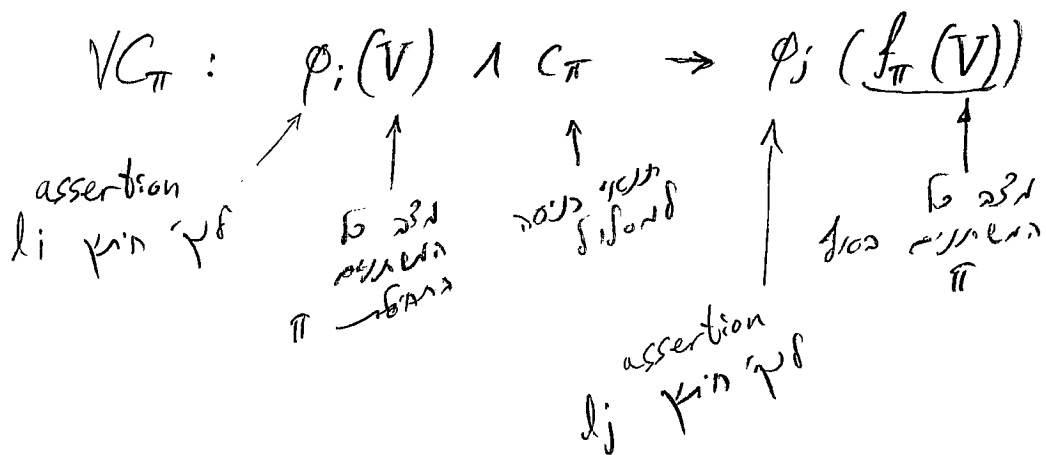 VCπ : φi(V) ∧ Cπ → φj (fπ(V))
assertion
לנק' חיתוך li
מצב כל
המשתנים
בתחילת π
תנאי כניסה
למסלול
assertion
לנק' חיתוך lj
מצב כל
המשתנים בסוף
π